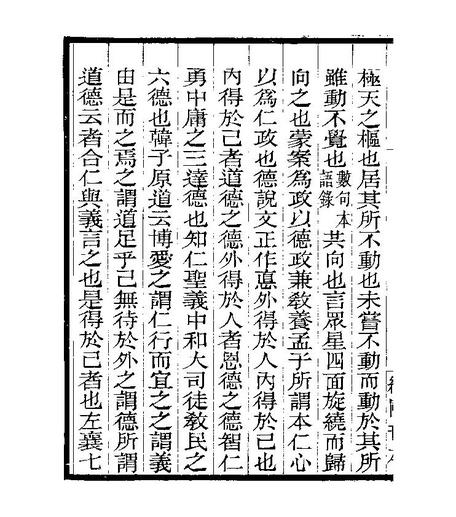 極天之樞也居其所不動也未嘗不動而動於其所
雖動不覺也數句本語錄共向也言眾星四面旋繞而歸
向之也蒙案為政以德政兼敎養孟子所謂本仁心
以為仁政也德說文正作悳外得於人內得於己也
內得於己者道德之德外得於人者恩德之德智仁
勇中庸之三達德也知仁聖義中和大司徒敎民之
六德也韓子原道云博愛之謂仁行而宜之之謂義
由是而之焉之謂道足乎己無待於外之謂德所謂
道德云者合仁與義言之也是得於己者也左襄七